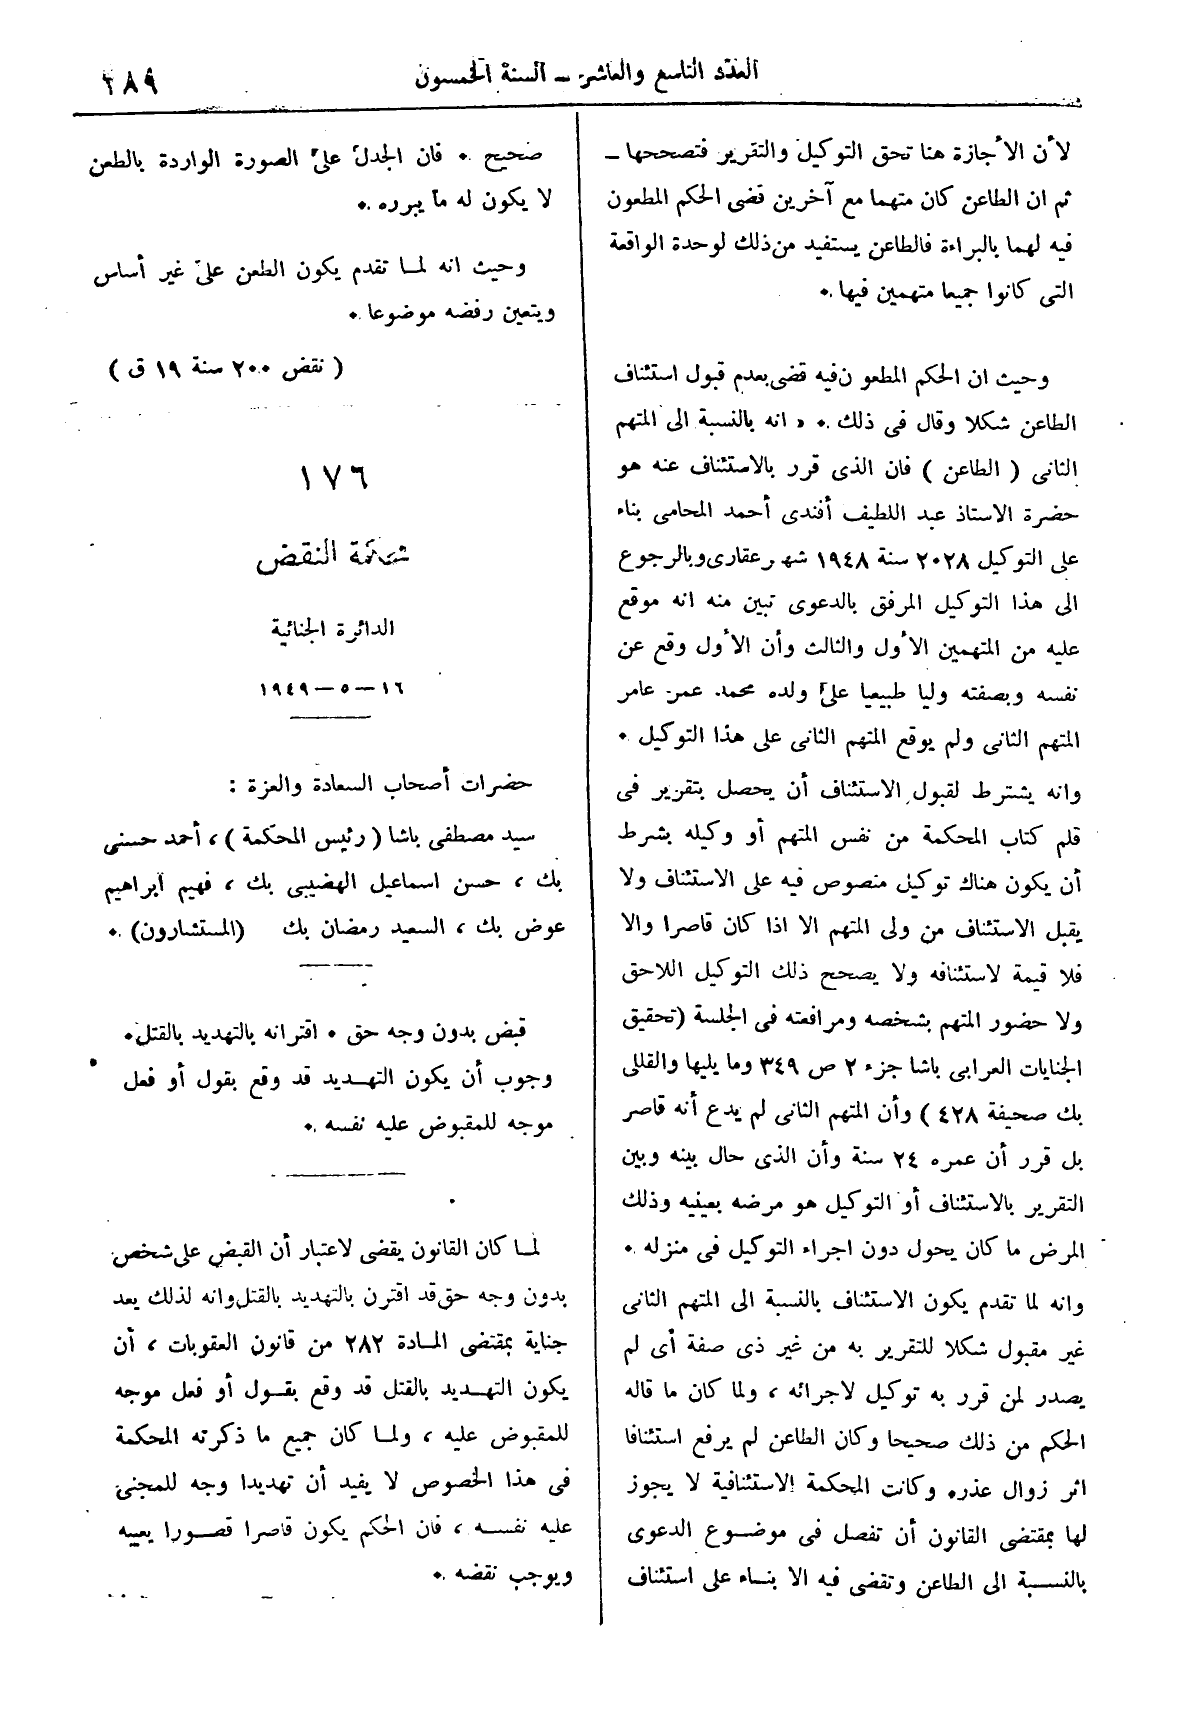 العدد التاسع والعاشر – السنة الخمسون
٢٨٩
لأن الأجازة هنا تحق التوكيل والتقرير فتصححها –
ثم ان الطاعن كان متهما مع آخرين قضى الحكم المطعون
فيه لهما بالبراءة فالطاعن يستفيد من ذلك لوحدة الواقعة
التى كانوا جميعا متهمين فيها .
وحيث ان الحكم المطعو ن فيه قضى بعدم قبول استئناف
الطاعن شكلا وقال فى ذلك . « انه بالنسبة الى المتهم
الثانى ( الطاعن ) فان الذى قرر بالاستئناف عنه هو
حضرة الاستاذ عبد اللطيف أفندى أحمد المحامى بناء
على التوكيل ٢٠٢٨ سنة ١٩٤٨ شهر عقارى وبالرجوع
الى هذا التوكيل المرفق بالدعوى تبين منه انه موقع
عليه من المتهمين الأول والثالث وأن الأول وقع عن
نفسه وبصفته وليا طبيعيا على ولده محمد عمر عامر
المتهم الثانى ولم يوقع المتهم الثانى على هذا التوكيل .
وانه يشترط لقبول الاستئناف أن يحصل بتقرير فى
قلم كتاب المحكمة من نفس المتهم أو وكيله بشرط
أن يكون هناك توكيل منصوص فيه على الاستئناف ولا
يقبل الاستئناف من ولى المتهم الا اذا كان قاصرا والا
فلا قيمة لاستئنافه ولا يصحح ذلك التوكيل اللاحق
ولا حضور المتهم بشخصه ومرافعته فى الجلسة (تحقيق
الجنايات العرابى باشا جزء ٢ ص ٣٤٩ وما يليها والقللى
بك صحيفة ٤٢٨ ) وأن المتهم الثانى لم يدع أنه قاصر
بل قرر أن عمره ٢٤ سنة وأن الذى حال بينه وبين
التقرير بالاستئناف أو التوكيل هو مرضه بعينيه وذلك
المرض ما كان يحول دون اجراء التوكيل فى منزله .
وانه لما تقدم يكون الاستئناف بالنسبة الى المتهم الثانى
غير مقبول شكلا للتقرير به من غير ذى صفة أى لم
يصدر لمن قرر به توكيل لاجرائه ، ولما كان ما قاله
الحكم من ذلك صحيحا وكان الطاعن لم يرفع استئنافا
اثر زوال عذره وكانت المحكمة الاستئنافية لا يجوز
لها بمقتضى القانون أن تفصل فى موضوع الدعوى
بالنسبة الى الطاعن وتقضى فيه الا بناء على استئناف
صحيح . فان الجدل على الصورة الواردة بالطعن
لا يكون له ما يبرره .
وحيث انه لما تقدم يكون الطعن على غير أساس
ويتعين رفضه موضوعا .
( نقض ٢٠٠ سنة ١٩ ق )
١٧٦
محكمة النقض
الدائرة الجنائية
١٦ – ٥ – ١٩٤٩
حضرات أصحاب السعادة والعزة :
سيد مصطفى باشا ( رئيس المحكمة ) ، أحمد حسنى
بك ، حسن اسماعيل الهضيبى بك ، فهيم ابراهيم
عوض بك ، السعيد رمضان بك (المستشارون) .
قبض بدون وجه حق . اقترانه بالتهديد بالقتل .
وجوب أن يكون التهديد قد وقع بقول أو فعل
موجه للمقبوض عليه نفسه .
لما كان القانون يقضى لاعتبار أن القبض على شخص
بدون وجه حق قد اقترن بالتهديد بالقتل وانه لذلك يعد
جناية بمقتضى المادة ٢٨٢ من قانون العقوبات ، أن
يكون التهديد بالقتل قد وقع بقول أو فعل موجه
للمقبوض عليه ، ولما كان جميع ما ذكرته المحكمة
فى هذا الخصوص لا يفيد أن تهديدا وجه للمجنى
عليه نفسه ، فان الحكم يكون قاصرا قصورا يعيبه
ويوجب نقضه .